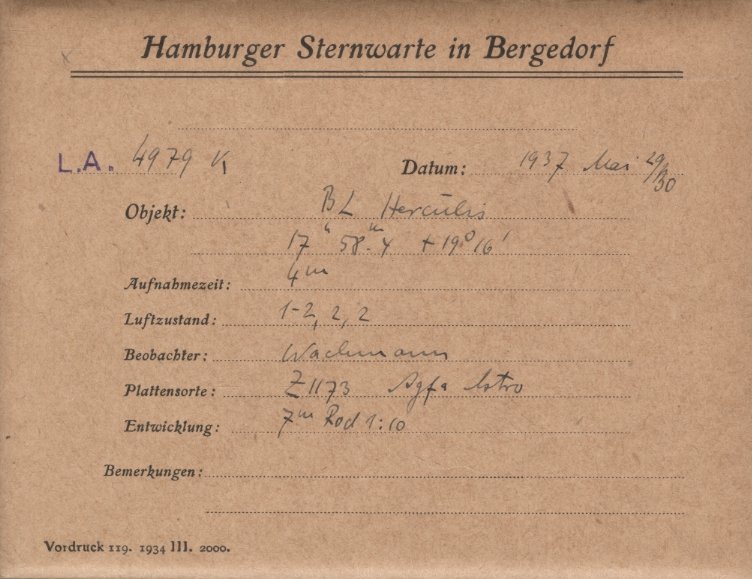 Hamburger Sternwarte in Bergedorf
L.A. 4979 K1 Datum: 1937 Mai 29/30
Objekt: BL Herculis
17h 58m.4 +19° 16'
Aufnahmezeit: 4m
Luftzustand: 1-2, 2, 2
Beobachter: Wachmann
Plattensorte: Z1173 Agfa Astro
Entwicklung: 7m Rod 1:10
Bemerkungen:
Vordruck 119. 1934 III. 2000.